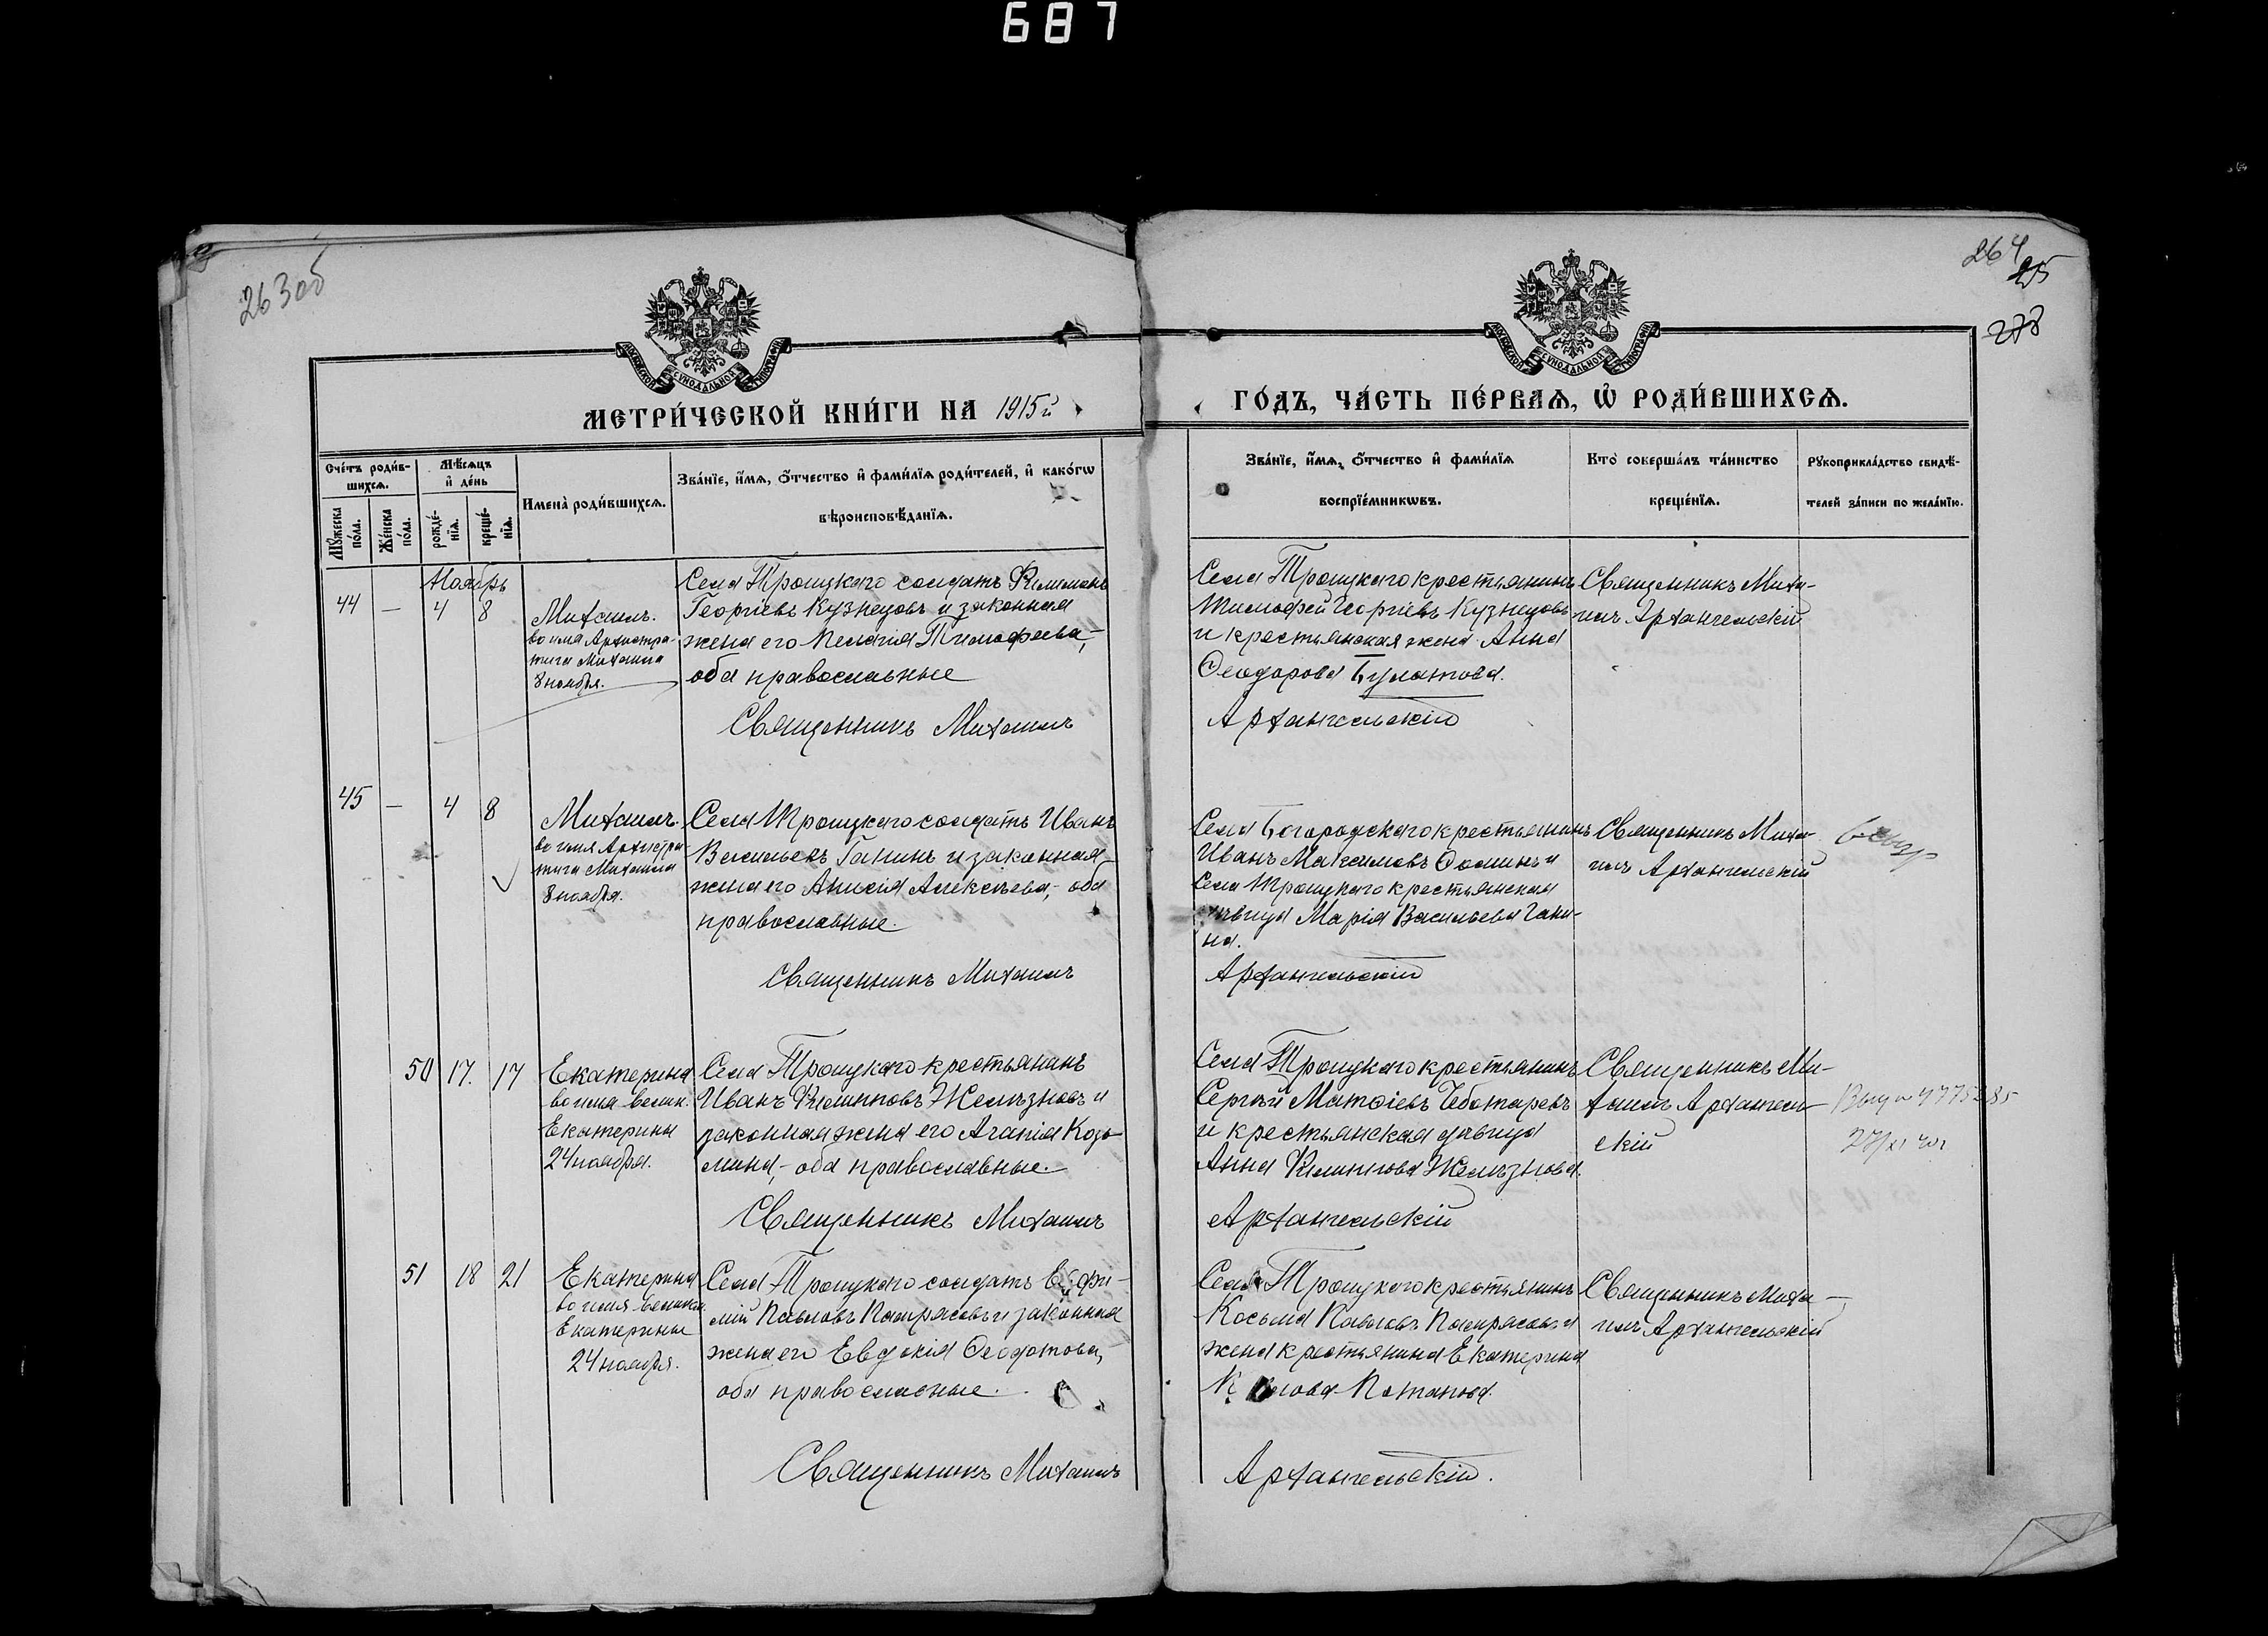 687
263об
264
25
278
МОСКОВСКОЙ СУНОДАЛЬНОЙ ТИПОГРАФІИ
МОСКОВСКОЙ СУНОДАЛЬНОЙ ТИПОГРАФІИ
МЕТРИ́ЧЕСКОЙ КНИ́ГИ НА 1915й
ГО́ДЪ, ЧА́СТЬ ПЕ́РВАѦ, Ѿ РОДИ́ВШИХСѦ.
Сче́тъ роди́в-
шихсѧ.
Мꙋ́жеска по́ла.
Же́нска по́ла.
Мѣ́сѧцъ и҆ де́нь
рожде́-нїѧ.
креще́-нїѧ.
Имена̀ роди́вшихсѧ.
Зва́нїе, и҆́мѧ, ѻ҆́тчество и҆ фами́лїѧ роди́телей, и҆ како́гѡ
вѣроисповѣ́данїѧ.
Зва́нїе, и҆́мѧ, ѻ҆́тчество и҆ фами́лїѧ
воспрїе́мникѡвъ.
Кто̀ соверша́лъ та́инство
креще́нїѧ.
Рꙋкоприкла́дство свидѣ́-
телей за́писи по жела́нїю.
Ноябрь
44 — 4 8
Михаилъ.
во имя Архистра-
тига Михаила
8 ноября.
Села Троицкаго солдатъ Филимонъ
Георгіевъ Кузнецовъ и законная
жена его Пелагія Тимофеева,-
оба православные
Священникъ Михаилъ
Села Троицкаго крестьянинъ
Тимофей Георгіевъ Кузнецовъ
и крестьянская жена Анна
Ѳеодорова Булатова.
Архангельскій
Священникъ Миха-
илъ Архангельскій
45 — 4 8
Михаилъ.
во имя Архистра-
тига Михаила
8 ноября.
Села Троицкаго солдатъ Иванъ
Васильевъ Ганинъ и законная
жена его Анисія Алексѣева,- оба
православные.
Священникъ Михаилъ
Села Богородскаго крестьянинъ
Иванъ Максимовъ Ѳоминъ и
Села Троицкаго крестьянская
дѣвица Марія Васильева Гани-
на.
Архангельскій
Священникъ Миха-
илъ Архангельскій
50 17. 17
Екатерина
во имя велик.
Екатерины
24 ноября.
Села Троицкаго крестьянинъ
Иванъ Филипповъ Желѣзновъ и
законная жена его Агапія Козь-
мина,- оба православные.
Священникъ Михаилъ
Села Троицкаго крестьянинъ
Сергѣй Матѳіевъ Чеботаревъ
и крестьянская дѣвица
Анна Филиппова Желѣзнова.
Архангельскій
Священникъ Ми-
хаилъ Архангель-
скій
51 18 21
Екатерина
во имя велик.
Екатерины
24 ноября.
Села Троицкаго солдатъ Евфи-
мій Павловъ Патрясовъ и законная
жена его Евдокія Ѳеодотова,-
оба православные.
Священникъ Михаилъ
Села Троицкаго крестьянинъ
Косьма Павловъ Патрясовъ и
жена крестьянина Екатерина
Потапова.
Архангельскій.
Священникъ Миха-
илъ Архангельскій